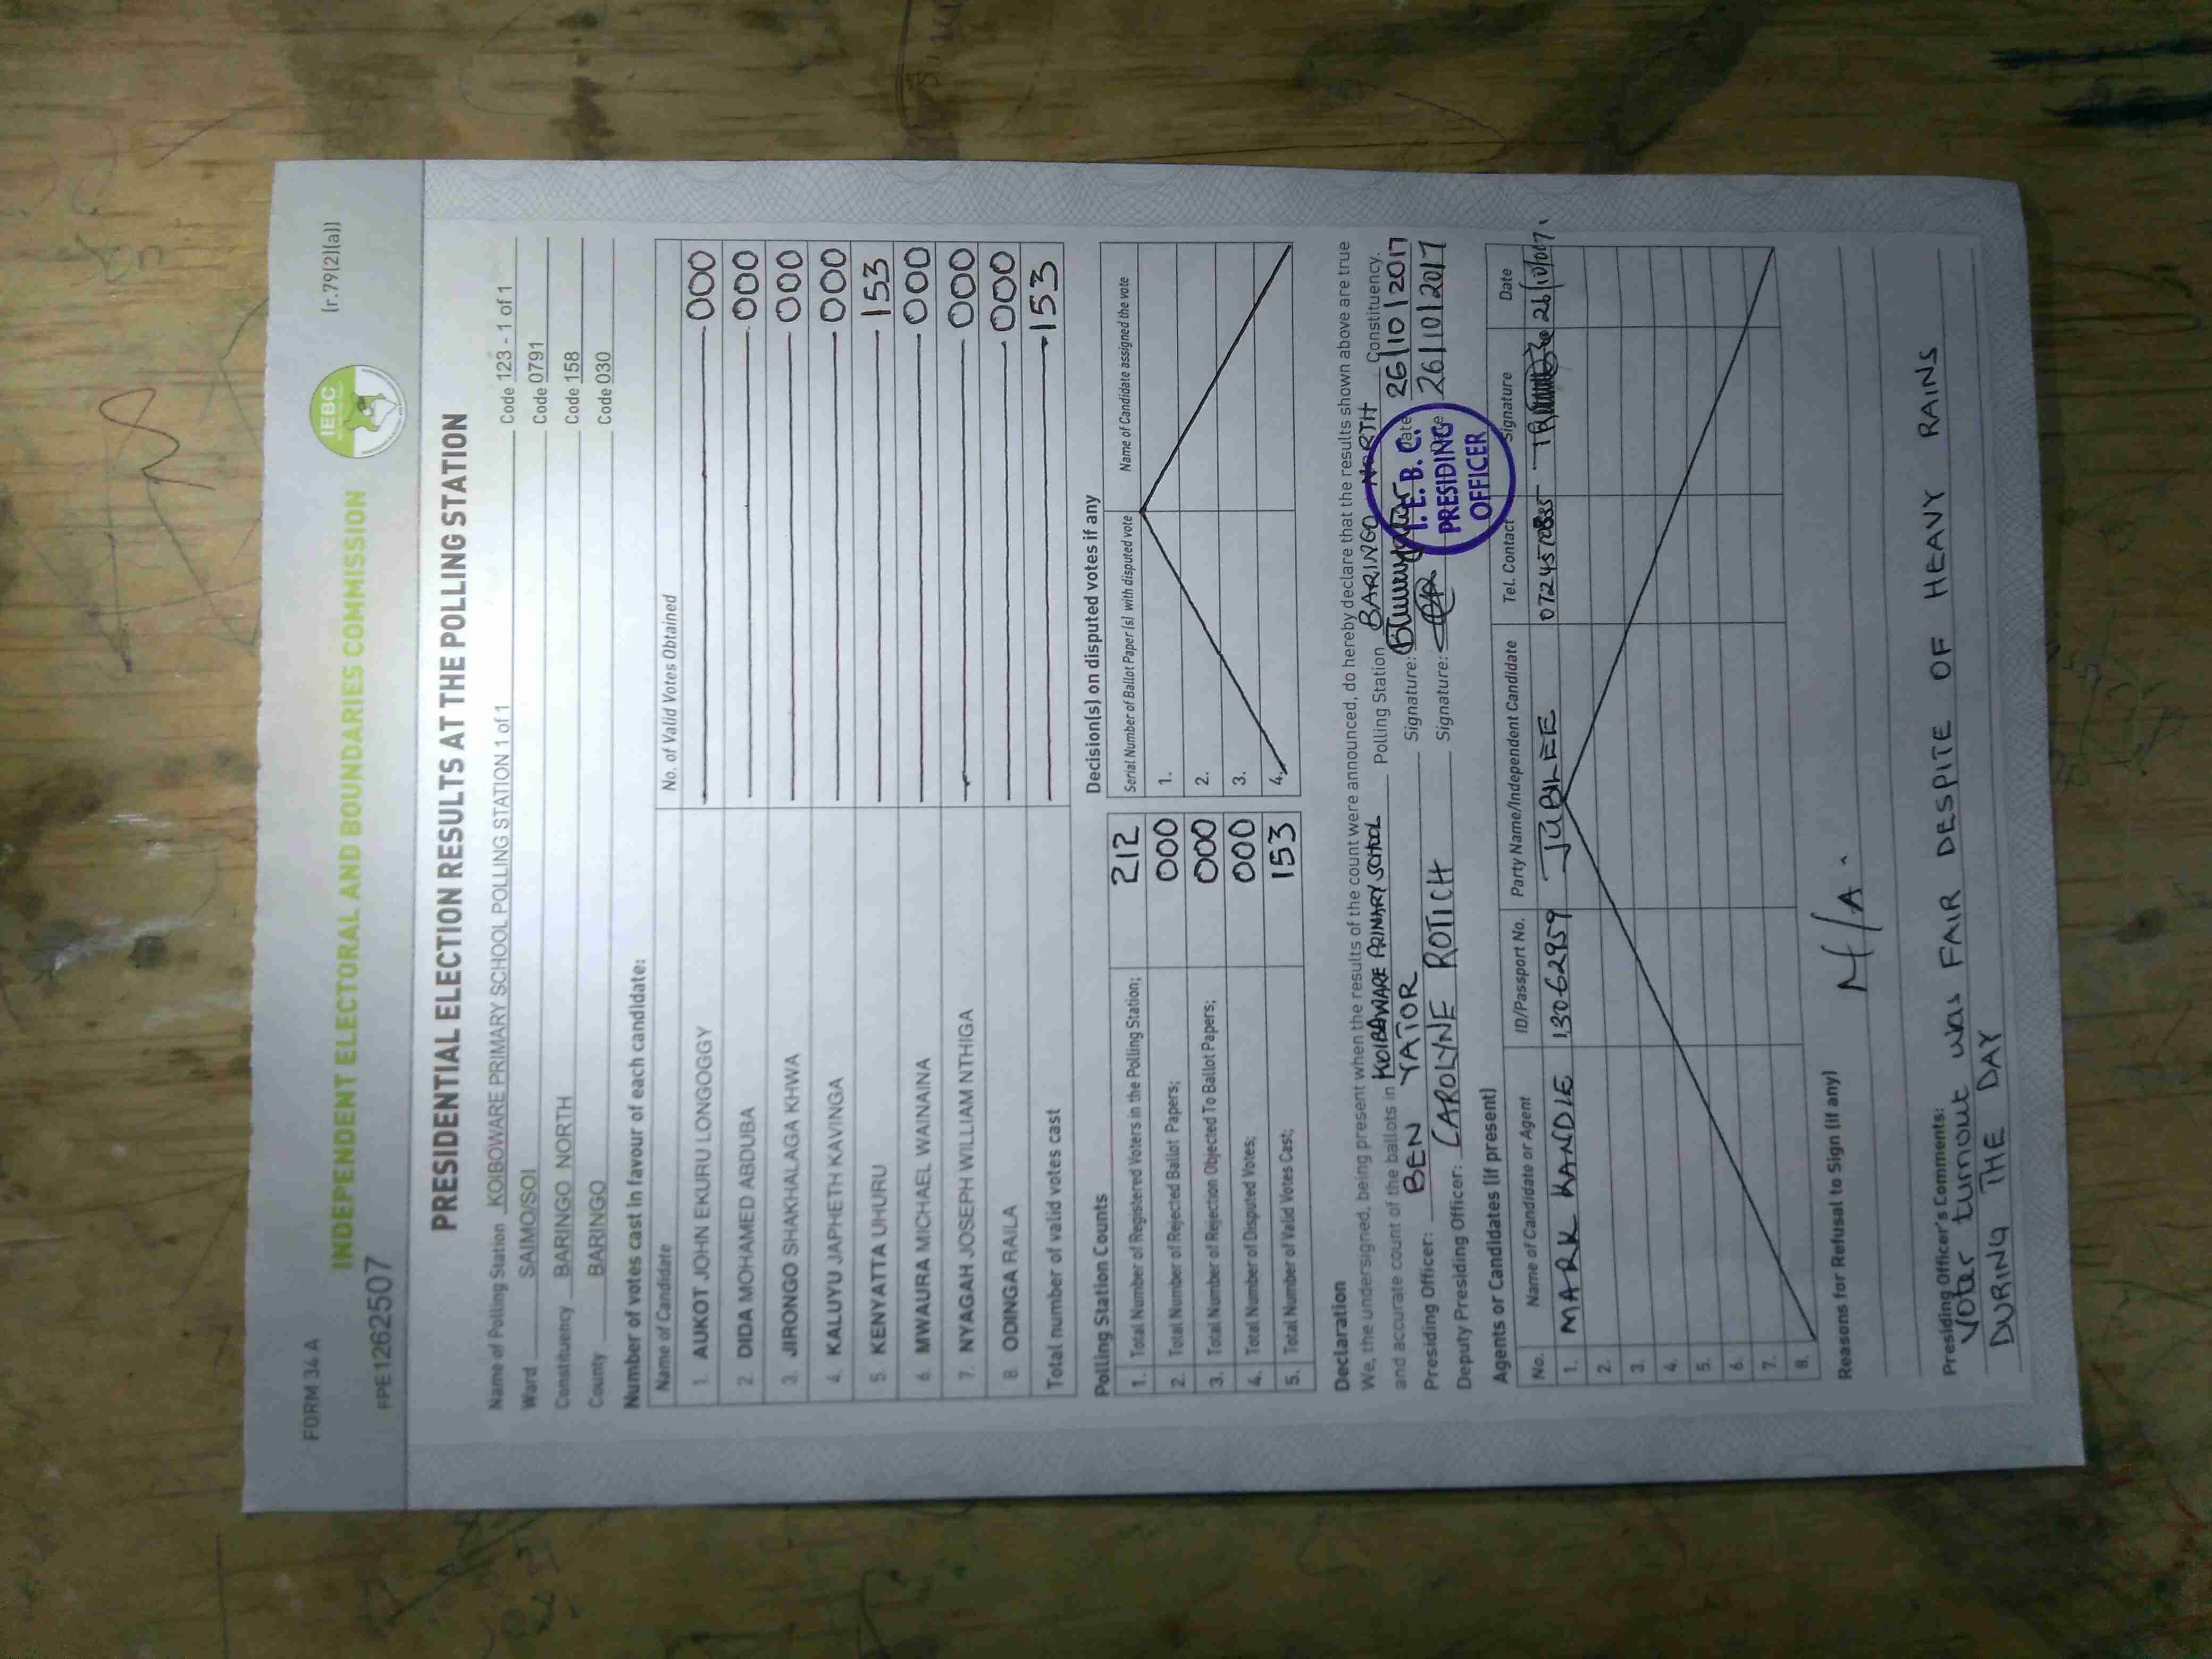 FORM 34 A
(r.79(2)(a))
INDEPENDENT ELECTORAL AND BOUNDARIES COMMISSION
IEBC
PPE1262507
PRESIDENTIAL ELECTION RESULTS AT THE POLLING STATION
Name of Polling Station KOIBOWARE PRIMARY SCHOOL POLLING STATION 1 of 1 Code 123 - 1 of 1
Ward SAIMO/SOI Code 0791
Constituency BARINGO NORTH Code 158
County BARINGO Code 030
Number of votes cast in favour of each candidate:
Name of Candidate No. of Valid Votes Obtained
1. AUKOT JOHN EKURU LONGOGGY 000
2. DIDA MOHAMED ABDUBA 000
3. JIRONGO SHAKHALAGA KHWA 000
4. KALUYU JAPHETH KAVINGA 000
5. KENYATTA UHURU 153
6. MWAURA MICHAEL WAINAINA 000
7. NYAGAH JOSEPH WILLIAM NTHIGA 000
8. ODINGA RAILA 000
Total number of valid votes cast 153
Polling Station Counts
1. Total Number of Registered Voters in the Polling Station; 212
2. Total Number of Rejected Ballot Papers; 000
3. Total Number of Rejection Objected To Ballot Papers; 000
4. Total Number of Disputed Votes; 000
5. Total Number of Valid Votes Cast; 153
Decision(s) on disputed votes if any
Serial Number of Ballot Paper (s) with disputed vote Name of Candidate assigned the vote
1.
2.
3.
4.
Declaration
We, the undersigned, being present when the results of the count were announced, do hereby declare that the results shown above are true
and accurate count of the ballots in KOIBAWARE PRIMARY SCHOOL Polling Station BARINGO NORTH Constituency.
Presiding Officer: BEN YATOR Signature: Date 26/10/2017
Deputy Presiding Officer: CAROLYNE ROTICH Signature: 26/10/2017
I.E.B.C.
PRESIDING
OFFICER
Agents or Candidates (if present)
No. Name of Candidate or Agent ID/Passport No. Party Name/Independent Candidate Tel. Contact Signature Date
1. MARK KANDIE 13062959 JUBILEE
2.
3.
4.
5.
6.
7.
8.
Reasons for Refusal to Sign (if any)
N/A.
Presiding Officer's Comments:
Voter turnout was FAIR DESPITE OF HEAVY RAINS
DURING THE DAY